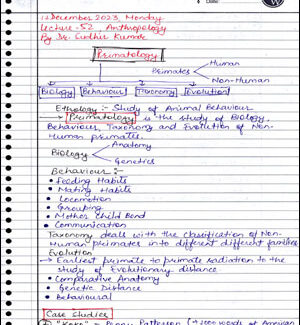 11 December 2023, Monday
Lecture-52, Anthropology
By Dr. Sudhir Kumar
Primatology
Human
Primates
Non-Human
Biology Behaviour Taxonomy Evolution
Ethology :- Study of Animal Behaviour
Primatology is the study of Biology,
Behaviour, Taxonomy and Evolution of Non-
Human primates.
Anatomy
Biology
Genetics
Behaviour :-
• Feeding Habits
• Mating Habits
• Locomotion
• Grouping
• Mother Child Bond
• Communication
Taxonomy deals with the classification of Non-
Human primates into different different families
Evolution
→ Earliest primate to primate radiation to the
study of Evolutionary distance
• Comparative Anatomy
• Genetic Distance
• Behavioural
Case Studies
"Koko" - Penny Patterson (→2000 words of American